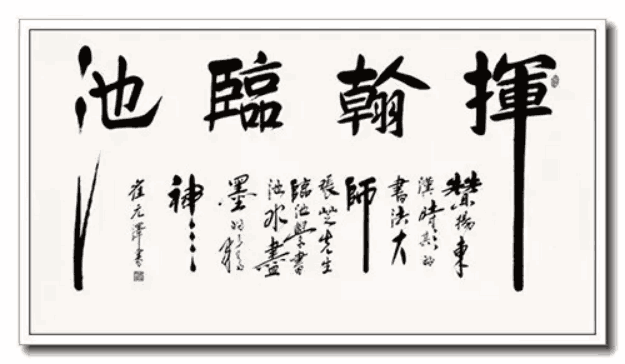 揮翰臨池
揚東
漢時期的
書法大
師
張芝先生
臨池學書
池水盡
墨的
神
崔元澤書